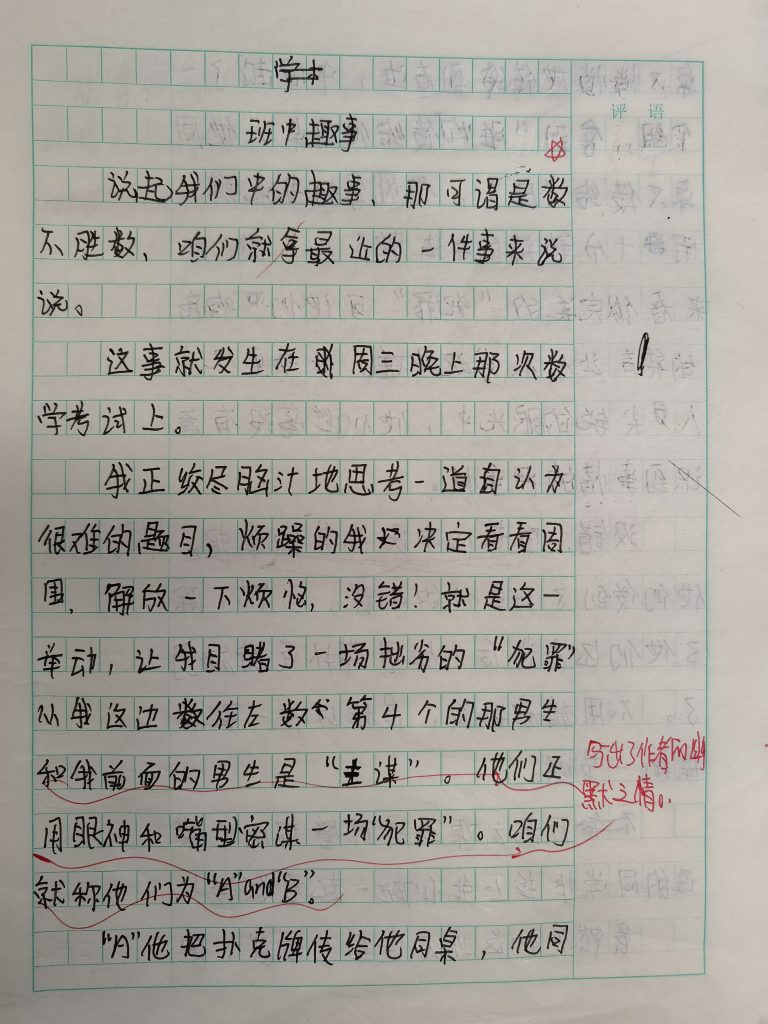 班中趣事
评语
说起我们中的趣事、那可谓是数
不胜数、咱们就拿最近的一件事来说
说。
这事就发生在周三晚上那次数
学考试上。
我正绞尽脑汁地思考一道自认为
很难的题目，烦躁的我决定看看周
围，解放一下烦恼，没错！就是这一
举动，让我目睹了一场拙劣的“犯罪”
从我这边数往左数第4个的那男生
和我前面的男生是“主谋”。他们正
用眼神和嘴型密谋一场“犯罪”。咱们
就称他们为“A”and“B”。
“A”他把扑克牌传给他同桌，他同
写出了作者的幽
默之情。